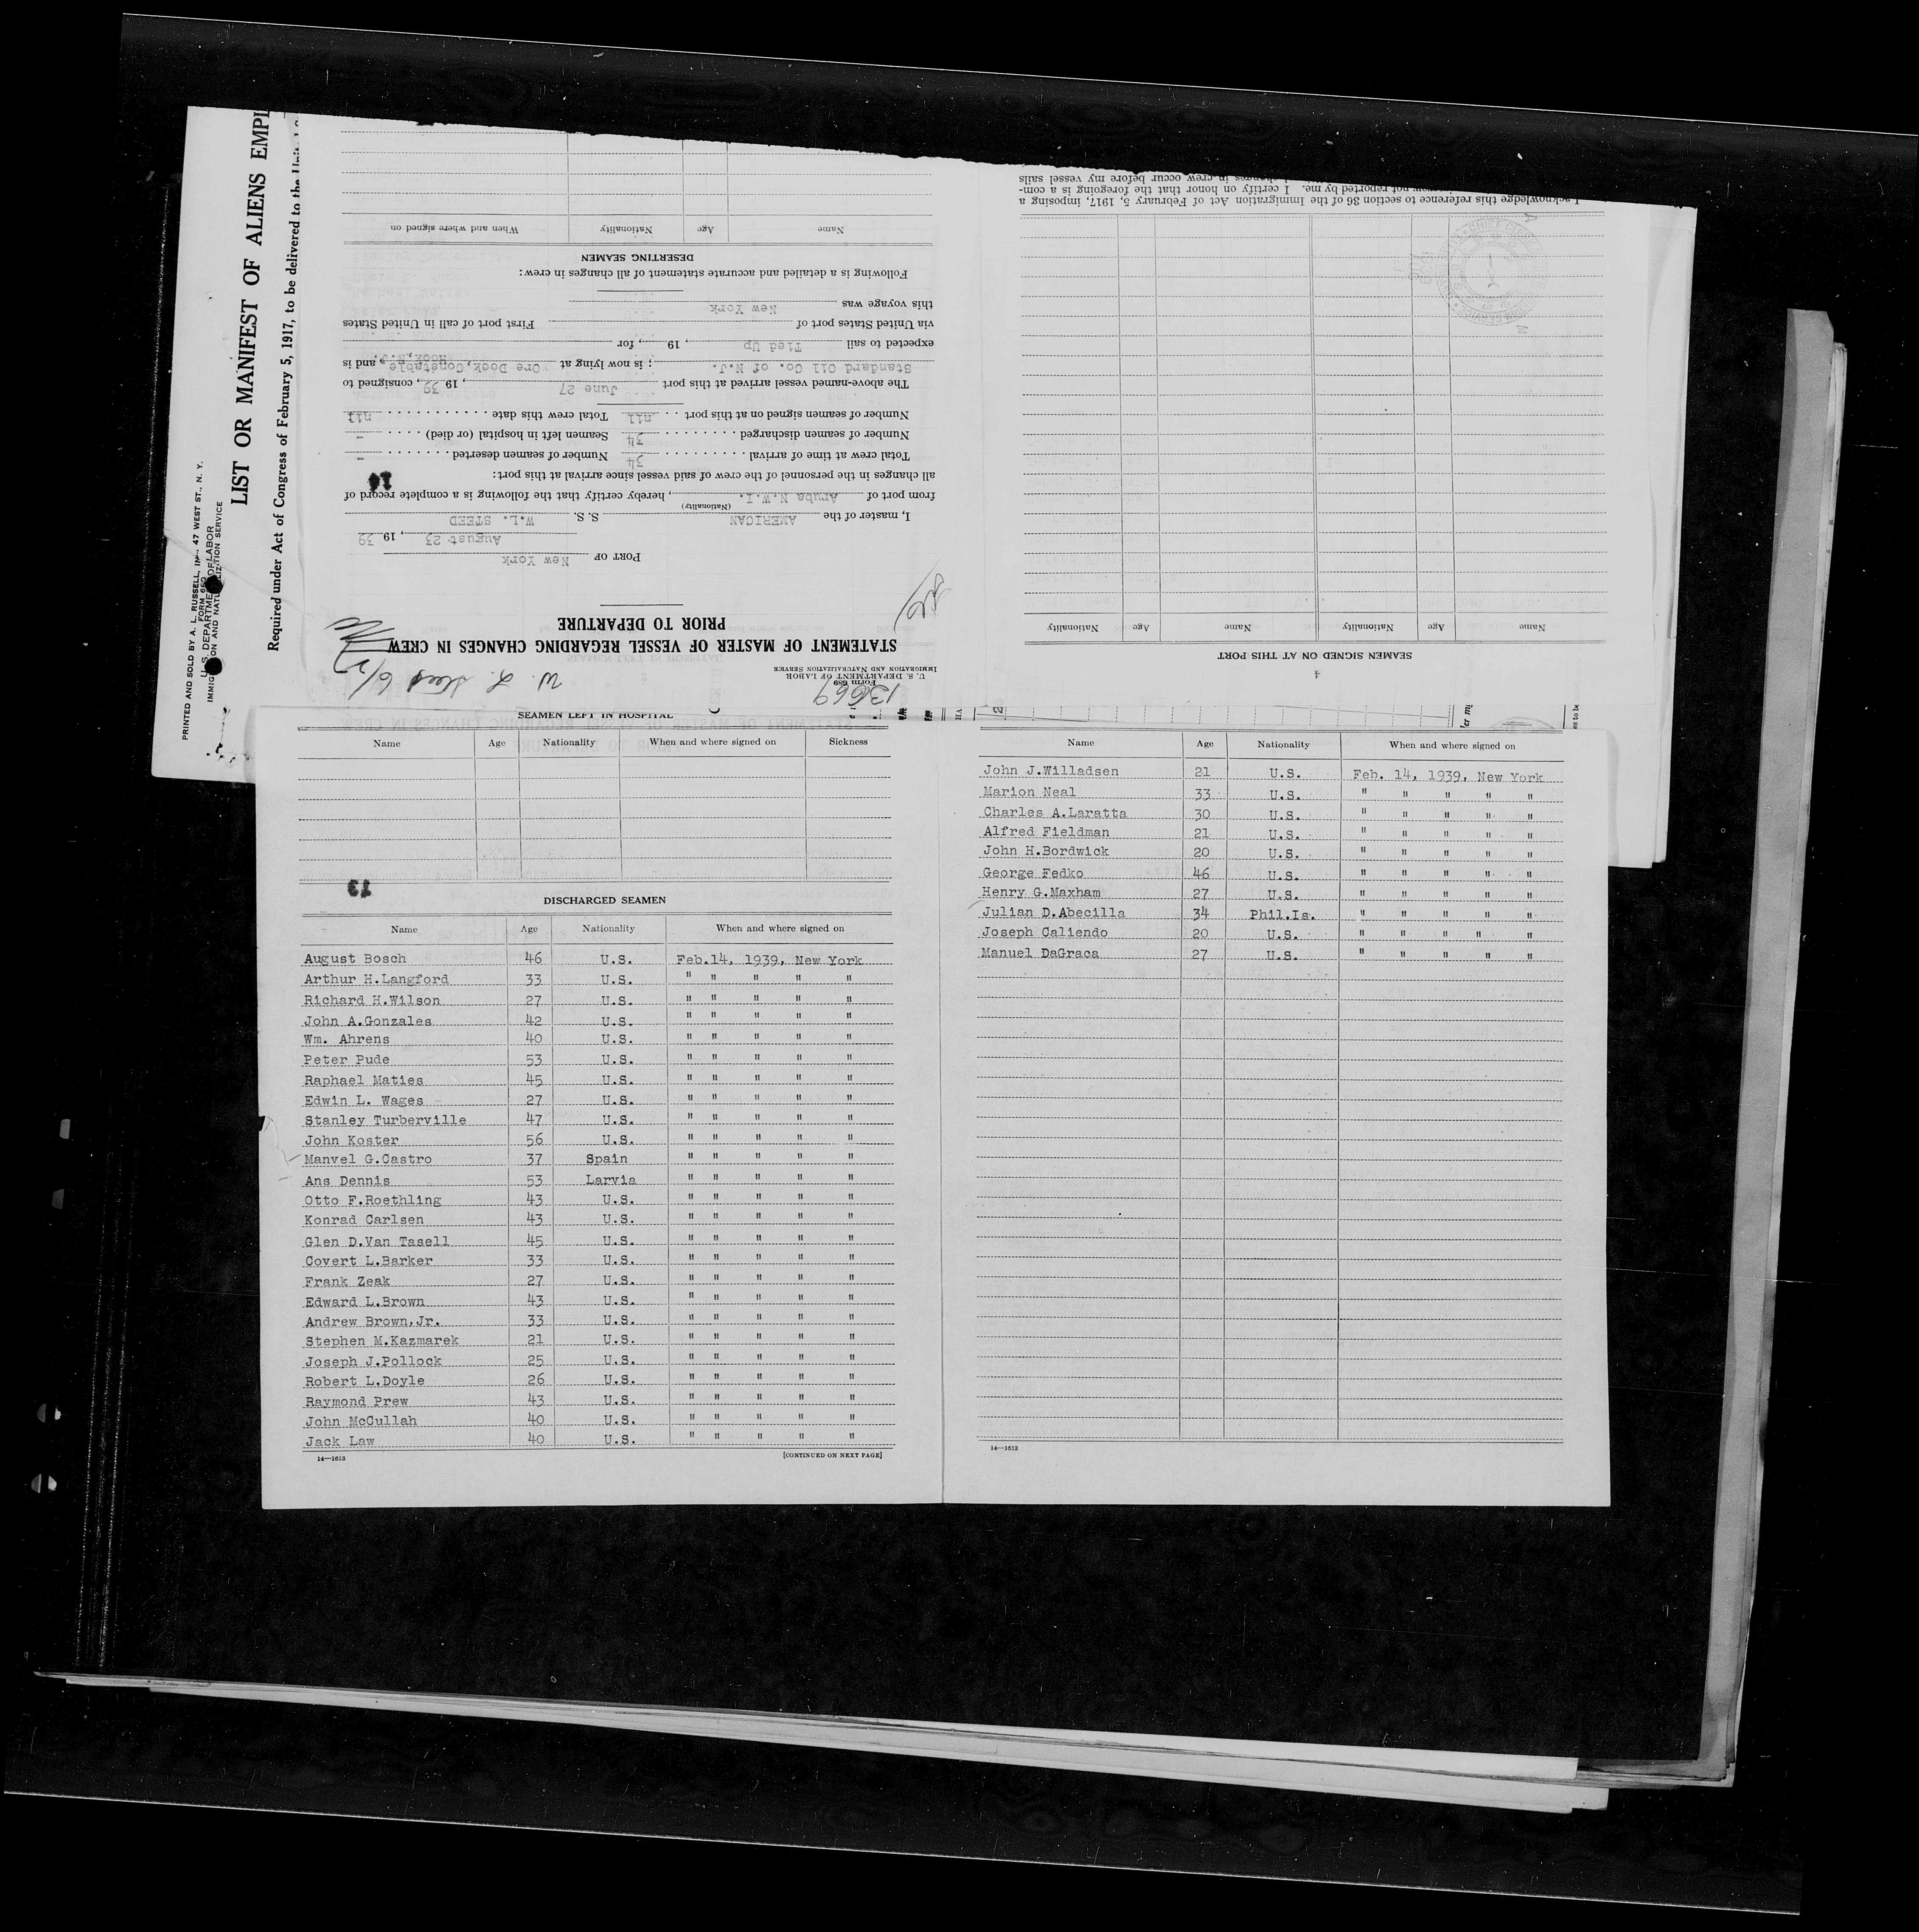 PRINTED AND SOLD BY A. L. RUSSELL, INC., 47 WEST ST., N. Y.
FORM 680
U. S. DEPARTMENT OF LABOR
IMMIGRATION AND NATURALIZATION SERVICE
LIST OR MANIFEST OF ALIENS EMPL
Required under Act of Congress of February 5, 1917, to be delivered to the
13669
W. L. Steed 6/27
Form 689
U. S. DEPARTMENT OF LABOR
IMMIGRATION AND NATURALIZATION SERVICE
STATEMENT OF MASTER OF VESSEL REGARDING CHANGES IN CREW
PRIOR TO DEPARTURE
PORT OF New York
August 23, 19 39
I, master of the AMERICAN S. S. W.L. STEED
(Nationality)
from port of Aruba N.W.I., hereby certify that the following is a complete record of
all changes in the personnel of the crew of said vessel since arrival at this port:
Total crew at time of arrival 34 Number of seamen deserted -
Number of seamen discharged 34 Seamen left in hospital (or died) -
Number of seamen signed on at this port nil Total crew this date nil
The above-named vessel arrived at this port June 27, 19 39, consigned to
Standard Oil Co. of N.J. ; is now lying at Ore Dock, Constable Hook, N.J., and is
expected to sail Tied Up, 19 , for
via United States port of First port of call in United States
this voyage was New York
Following is a detailed and accurate statement of all changes in crew:
DESERTING SEAMEN
Name Age Nationality When and where signed on
4
SEAMEN SIGNED ON AT THIS PORT
Name Age Nationality Name Age Nationality
I acknowledge this reference to section 36 of the Immigration Act of February 5, 1917, imposing a
not reported by me. I certify on honor that the foregoing is a com-
changes in crew occur before my vessel sails
SEAMEN LEFT IN HOSPITAL
Name Age Nationality When and where signed on Sickness
13
DISCHARGED SEAMEN
Name Age Nationality When and where signed on
August Bosch 46 U.S. Feb.14, 1939, New York
Arthur H.Langford 33 U.S. " " " " "
Richard H.Wilson 27 U.S. " " " " "
John A.Gonzales 42 U.S. " " " " "
Wm. Ahrens 40 U.S. " " " " "
Peter Pude 53 U.S. " " " " "
Raphael Maties 45 U.S. " " " " "
Edwin L. Wages 27 U.S. " " " " "
Stanley Turberville 47 U.S. " " " " "
John Koster 56 U.S. " " " " "
Manvel G.Castro 37 Spain " " " " "
Ans Dennis 53 Larvia " " " " "
Otto F.Roethling 43 U.S. " " " " "
Konrad Carlsen 43 U.S. " " " " "
Glen D.Van Tasell 45 U.S. " " " " "
Covert L.Barker 33 U.S. " " " " "
Frank Zeak 27 U.S. " " " " "
Edward L.Brown 43 U.S. " " " " "
Andrew Brown,Jr. 33 U.S. " " " " "
Stephen M.Kazmarek 21 U.S. " " " " "
Joseph J.Pollock 25 U.S. " " " " "
Robert L.Doyle 26 U.S. " " " " "
Raymond Prew 43 U.S. " " " " "
John McCullah 40 U.S. " " " " "
Jack Law 40 U.S. " " " " "
14—1613 [CONTINUED ON NEXT PAGE]
Name Age Nationality When and where signed on
John J.Willadsen 21 U.S. Feb. 14, 1939, New York
Marion Neal 33 U.S. " " " " "
Charles A.Laratta 30 U.S. " " " " "
Alfred Fieldman 21 U.S. " " " " "
John H.Bordwick 20 U.S. " " " " "
George Fedko 46 U.S. " " " " "
Henry G.Maxham 27 U.S. " " " " "
Julian D.Abecilla 34 Phil.Is. " " " " "
Joseph Caliendo 20 U.S. " " " " "
Manuel DaGraca 27 U.S. " " " " "
14—1613